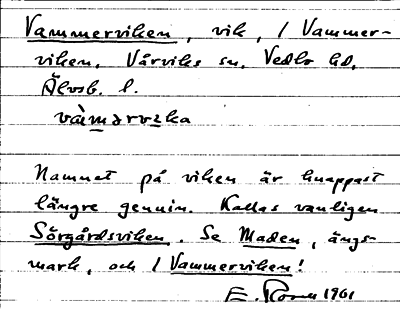 Vammerviken, vik, / Vammer-
viken. Vårviks sn. Vedbo hd.
Älvsb. l.
vàmərvɩka
Namnet på viken är knappast
längre genuin. Kallas vanligen
Sörgårdsviken. Se Maden, ängs-
mark, och / Vammerviken!
E. 1961